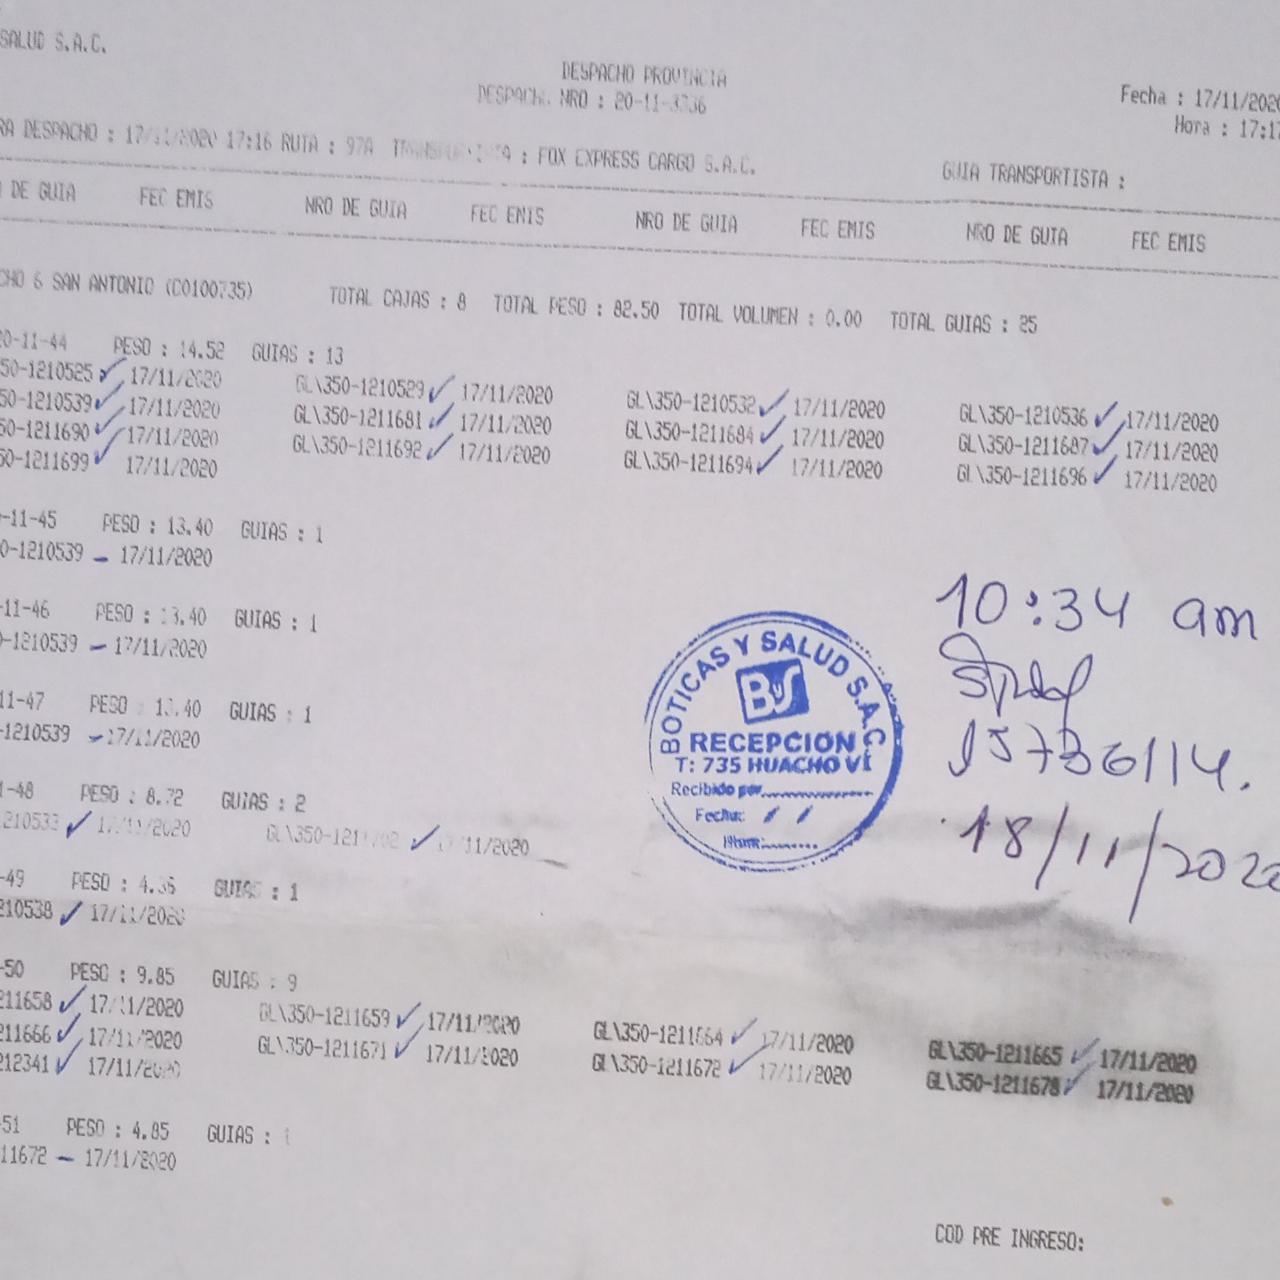 SALUD S.A.C.
DESPACHO PROVINCIA
DESPACH. NRO : 20-11-3736
Fecha : 17/11/2020
Hora : 17:17
RA DESPACHO : 17/11/2020 17:16 RUTA : 97A TRANSPORTISTA : FOX EXPRESS CARGO S.A.C.
GUIA TRANSPORTISTA :
DE GUIA FEC EMIS NRO DE GUIA FEC EMIS NRO DE GUIA FEC EMIS NRO DE GUIA FEC EMIS
CHO 6 SAN ANTONIO (C0100735) TOTAL CAJAS : 8 TOTAL PESO : 82.50 TOTAL VOLUMEN : 0.00 TOTAL GUIAS : 25
20-11-44 PESO : 14.52 GUIAS : 13
350-1210525 ✓ 17/11/2020 GL\350-1210529 ✓ 17/11/2020 GL\350-1210532 ✓ 17/11/2020 GL\350-1210536 ✓ 17/11/2020
350-1210539 ✓ 17/11/2020 GL\350-1211681 ✓ 17/11/2020 GL\350-1211684 ✓ 17/11/2020 GL\350-1211687 ✓ 17/11/2020
350-1211690 ✓ 17/11/2020 GL\350-1211692 ✓ 17/11/2020 GL\350-1211694 ✓ 17/11/2020 GL\350-1211696 ✓ 17/11/2020
350-1211699 ✓ 17/11/2020
-11-45 PESO : 13.40 GUIAS : 1
0-1210539 – 17/11/2020
-11-46 PESO : 13.40 GUIAS : 1
0-1210539 – 17/11/2020
11-47 PESO : 13.40 GUIAS : 1
-1210539 – 17/11/2020
1-48 PESO : 8.72 GUIAS : 2
1210533 ✓ 17/11/2020 ✓ 17/11/2020
-49 PESO : 4.36 GUIAS : 1
210538 ✓ 17/11/2020
-50 PESO : 9.85 GUIAS : 9
211658 ✓ 17/11/2020 GL\350-1211659 ✓ 17/11/2020 GL\350-1211664 ✓ 17/11/2020 GL\350-1211665 ✓ 17/11/2020
211666 ✓ 17/11/2020 GL\350-1211671 ✓ 17/11/2020 GL\350-1211672 ✓ 17/11/2020 GL\350-1211678 ✓ 17/11/2020
212341 ✓ 17/11/2020
-51 PESO : 4.85 GUIAS : 1
11672 – 17/11/2020
BOTICAS Y SALUD S.A.C
ByS
RECEPCIÓN
T: 735 HUACHO VI
Recibido por
Fecha: / /
Hora:
10:34 am
15736114.
18/11/2020
COD PRE INGRESO: